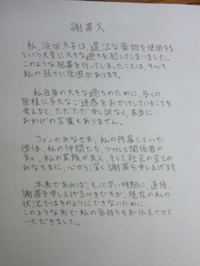 謝罪文
私、浜田文子は、違法な薬物を使用する
という大変に大きな過ちを犯してしまいました。
このような犯罪を行ってしまったことは、すべて
私の弱さに原因があります。
私自身の大きな過ちのために、多くの
皆様に多大なご迷惑をおかけしていることを
考えると、ただただ申し訳なく、本当に
おわびの言葉もありません。
ファンのみなさま、私の所属していた
団体、私の仲間たち、プロレス関係者の
方々、私の家族や友人、そして社会の全ての
みなさまに、心から深く謝罪を申し上げます
本来であれば、もっと早い時期に、直接、
謝罪を申し上げるべきですが、現在の私の
状況ではそのようにできないために、
このような形で私の気持ちをお伝えさせて
いただきました。